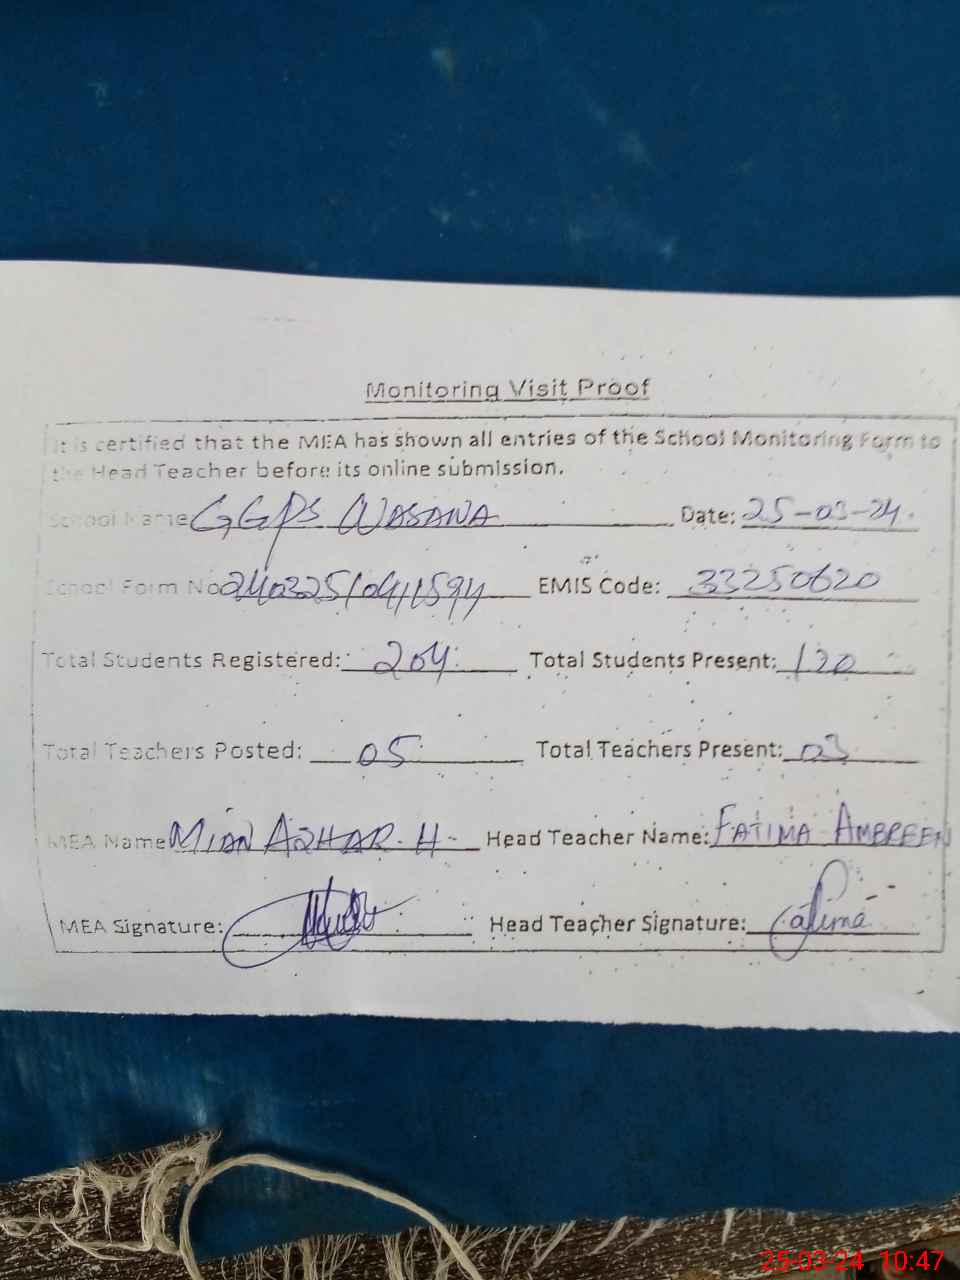 Monitoring Visit Proof
It is certified that the MEA has shown all entries of the School Monitoring Form to
the Head Teacher before its online submission.
School Name GGPS WASANA Date: 25-03-24.
School Form No EMIS Code: 33250620
Total Students Registered: 204 Total Students Present:
Total Teachers Posted: 05 Total Teachers Present: 03
MEA Name MIAN AZHAR. H- Head Teacher Name: FATIMA AMBREEN
MEA Signature: Head Teacher Signature: Fatima
25-03-24 10:47